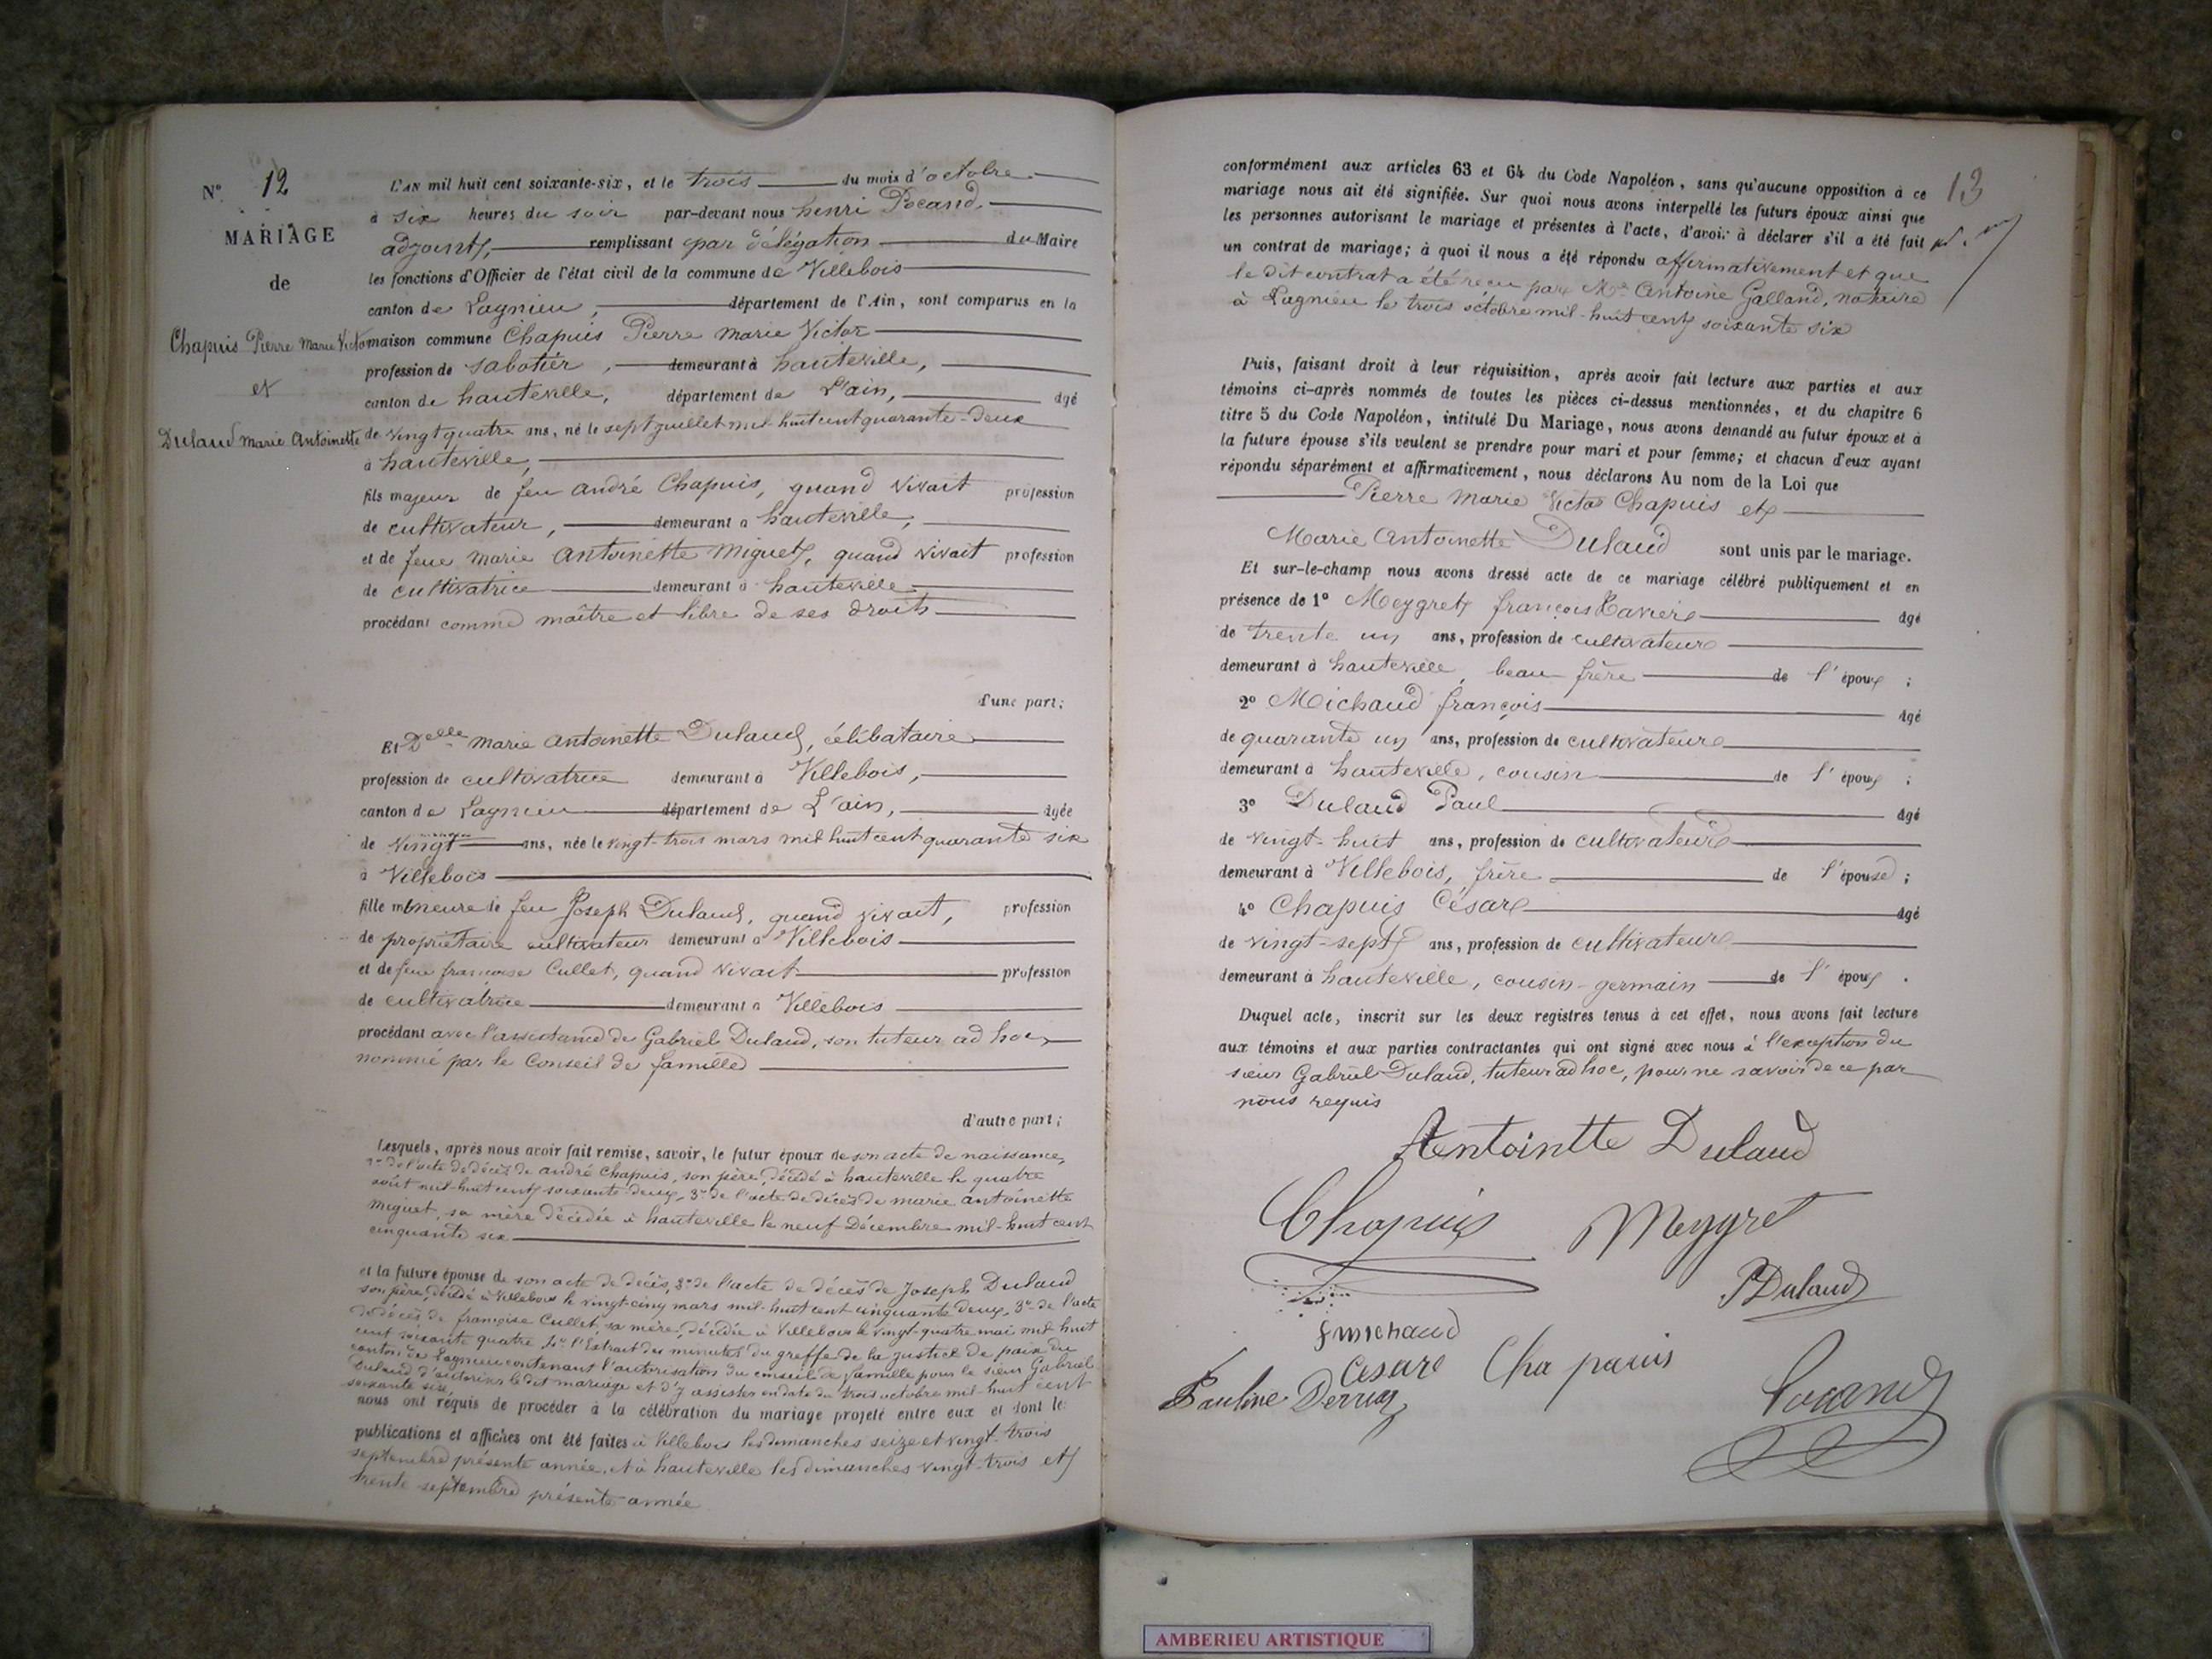 N° 12
MARIAGE
de
Chapuis Pierre Marie Victor
et
Dulaud Marie Antoinette
L'AN mil huit cent soixante-six, et le trois du mois d'octobre
à six heures du soir par-devant nous henri Pocand
adjoint, remplissant par délégation du Maire
les fonctions d'Officier de l'état civil de la commune de Villebois
canton de Lagnieu, département de l'Ain, sont comparus en la
maison commune Chapuis Pierre Marie Victor
profession de sabotier, demeurant à hauteville,
canton de hauteville, département de L'ain, âgé
de vingt quatre ans, né le sept juillet mil huit cent quarante-deux
à hauteville,
fils majeur de feu André Chapuis, quand vivait profession
de cultivateur, demeurant à hauteville,
et de feue Marie Antoinette Miguet, quand vivait profession
de cultivatrice demeurant à hauteville
procédant comme maître et libre de ses droits
d'une part;
Et Delle Marie Antoinette Dulaud, célibataire
profession de cultivatrice demeurant à Villebois,
canton de Lagnieu département de L'ain, âgée
de vingt ans, née le vingt-trois mars mil huit cent quarante six
à Villebois
fille mineure de feu Joseph Dulaud, quand vivait, profession
de propriétaire cultivateur demeurant à Villebois
et de feue françoise Cullet, quand vivait profession
de cultivatrice demeurant à Villebois
procédant avec l'assistance de Gabriel Dulaud, son tuteur ad hoc,
nommé par le Conseil de famille
d'autre part;
Lesquels, après nous avoir fait remise, savoir, le futur époux de son acte de naissance,
2° de l'acte de décès de andré Chapuis, son père, décédé à hauteville le quatre
août mil-huit cent soixante deux, 3° de l'acte de décès de marie antoinette
Miguet, sa mère décédée à hauteville le neuf Décembre mil-huit cent
cinquante six
et la future épouse de son acte de décès, 2° de l'acte de décès de Joseph Dulaud
son père, décédé à Villebois le vingt-cinq mars mil-huit cent cinquante deux, 3° de l'acte
de décès de françoise Cullet, sa mère, décédée à Villebois le vingt-quatre mai mil huit
cent soixante quatre 4° l'Extrait des minutes du greffe de la justice de paix du
canton de Lagnieu contenant l'autorisation du conseil de famille pour le sieur Gabriel
Dulaud d'autoriser le dit mariage et d'y assister en date du trois octobre mil-huit cent
soixante six,
nous ont requis de procéder à la célébration du mariage projeté entre eux et dont le
publications et affiches ont été faites à Villebois les dimanches seize et vingt-trois
septembre présente année, et à hauteville les dimanches vingt-trois et
trente septembre présente année
13
conformément aux articles 63 et 64 du Code Napoléon, sans qu'aucune opposition à ce
mariage nous ait été signifiée. Sur quoi nous avons interpellé les futurs époux ainsi que
les personnes autorisant le mariage et présentes à l'acte, d'avoir à déclarer s'il a été fait
un contrat de mariage; à quoi il nous a été répondu affirmativement et que
le dit contrat a été reçu par Me Antoine Galland, notaire
à Lagnieu le trois octobre mil-huit cent soixante six
Puis, faisant droit à leur réquisition, après avoir fait lecture aux parties et aux
témoins ci-après nommés de toutes les pièces ci-dessus mentionnées, et du chapitre 6
titre 5 du Code Napoléon, intitulé Du Mariage, nous avons demandé au futur époux et à
la future épouse s'ils veulent se prendre pour mari et pour femme; et chacun d'eux ayant
répondu séparément et affirmativement, nous déclarons Au nom de la Loi que
Pierre Marie Victor Chapuis et
Marie Antoinette Dulaud sont unis par le mariage.
Et sur-le-champ nous avons dressé acte de ce mariage célébré publiquement et en
présence de 1° Meygret françois Xavier âgé
de trente un ans, profession de cultivateur
demeurant à hauteville, beau frère de l'époux ;
2° Michaud françois âgé
de quarante un ans, profession de cultivateur
demeurant à hauteville, cousin de l'époux ;
3° Dulaud Paul âgé
de vingt-huit ans, profession de cultivateur
demeurant à Villebois, frère de l'épouse ;
4° Chapuis César âgé
de vingt-sept ans, profession de cultivateur
demeurant à hauteville, cousin-germain de l'époux .
Duquel acte, inscrit sur les deux registres tenus à cet effet, nous avons fait lecture
aux témoins et aux parties contractantes qui ont signé avec nous à l'exception du
sieur Gabriel Dulaud, tuteur ad hoc, pour ne savoir de ce par
nous requis
Antointte Dulaud
Chapuis Meygret
P Dulaud
f michaud
Cesare Cha pauis
Pauline
Pocand
AMBERIEU ARTISTIQUE